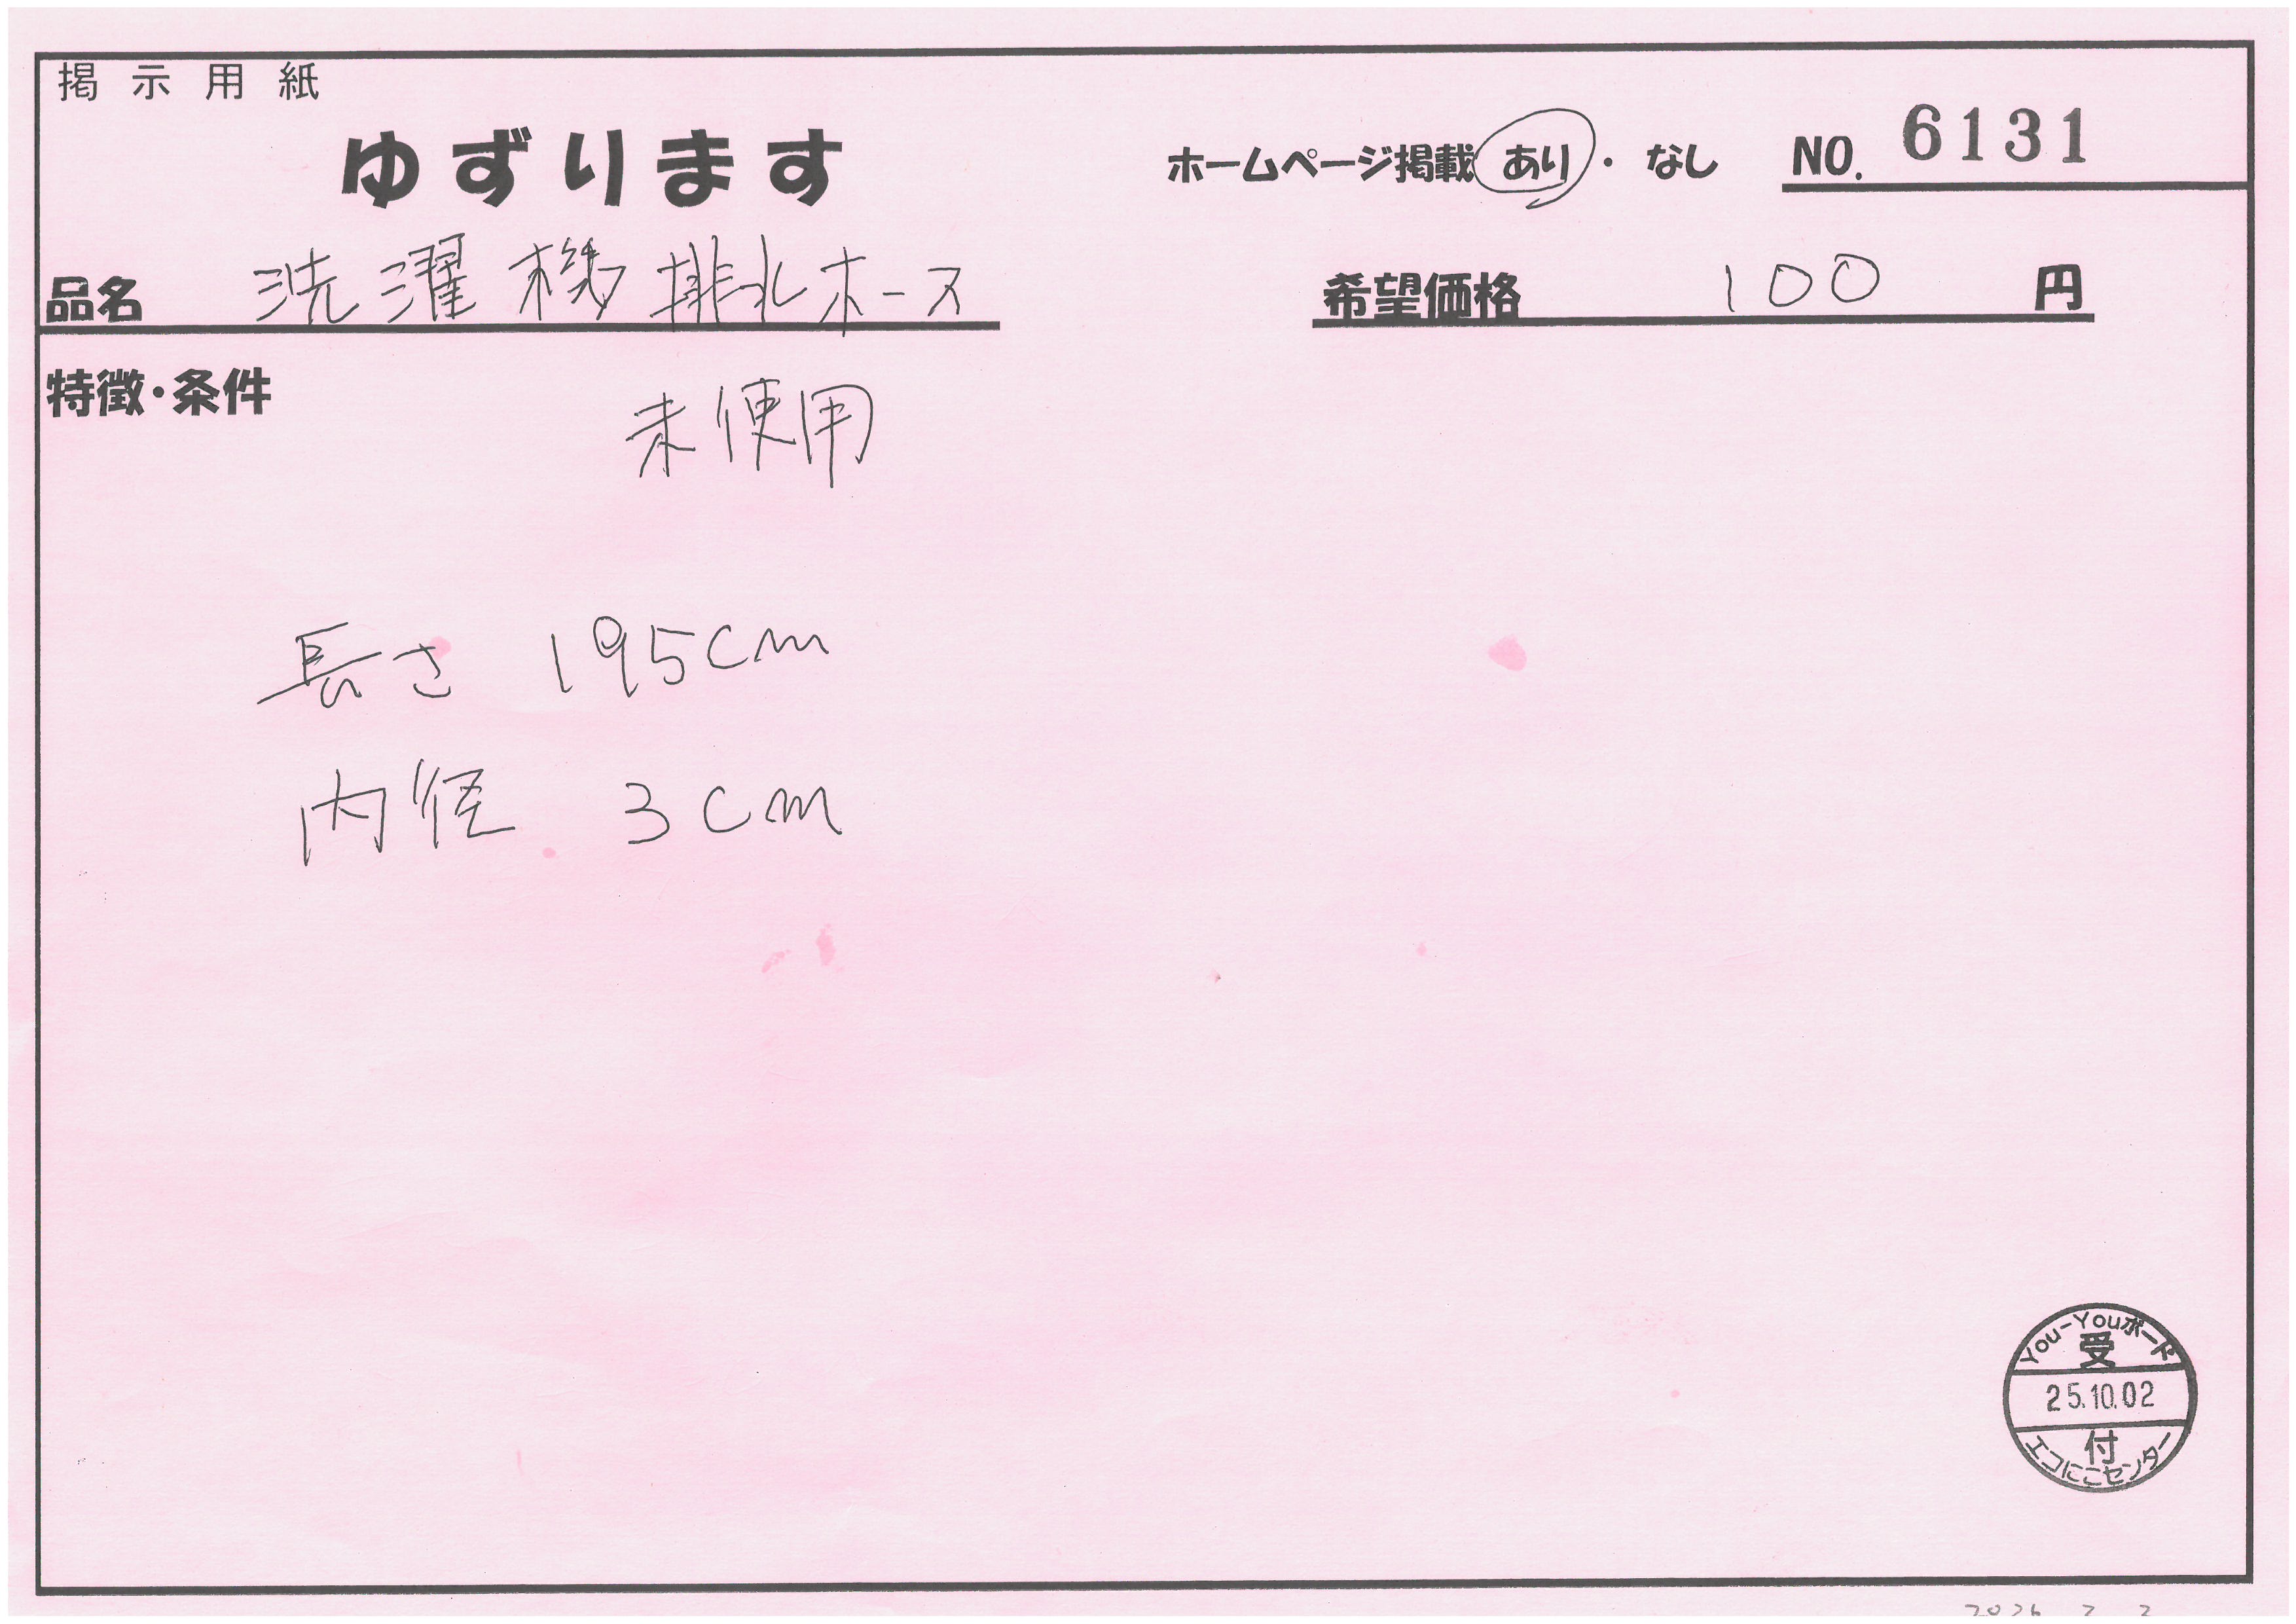 掲示用紙
ゆずります
ホームページ掲載 あり ・ なし NO. 6131
品名 洗濯機排水ホース
希望価格 100 円
特徴・条件
未使用
長さ 195cm
内径 3cm
You-Youボード
受
25.10.02
付
エコにこセンター